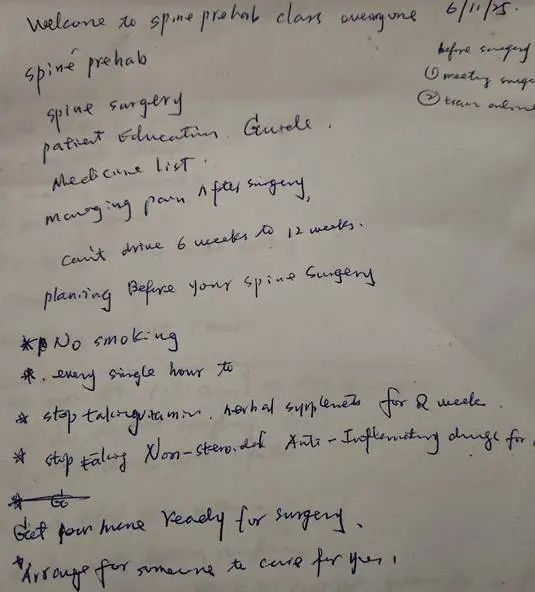 Welcome to spine prehab class everyone
6/11/25.
before surgery
① meeting surge
② train online
spine prehab
spine surgery
patient Education Guide.
Medicine list.
managing pain After surgery,
can't drive 6 weeks to 12 weeks.
planning Before your spine surgery
* No smoking
* every single hour to
* stop taking vitamin, herbal supplenets for 2 week.
* stop taking Non-steroidal Anti-Inflammatory drugs for
Get your home ready for surgery.
* Arrange for someone to care for you,